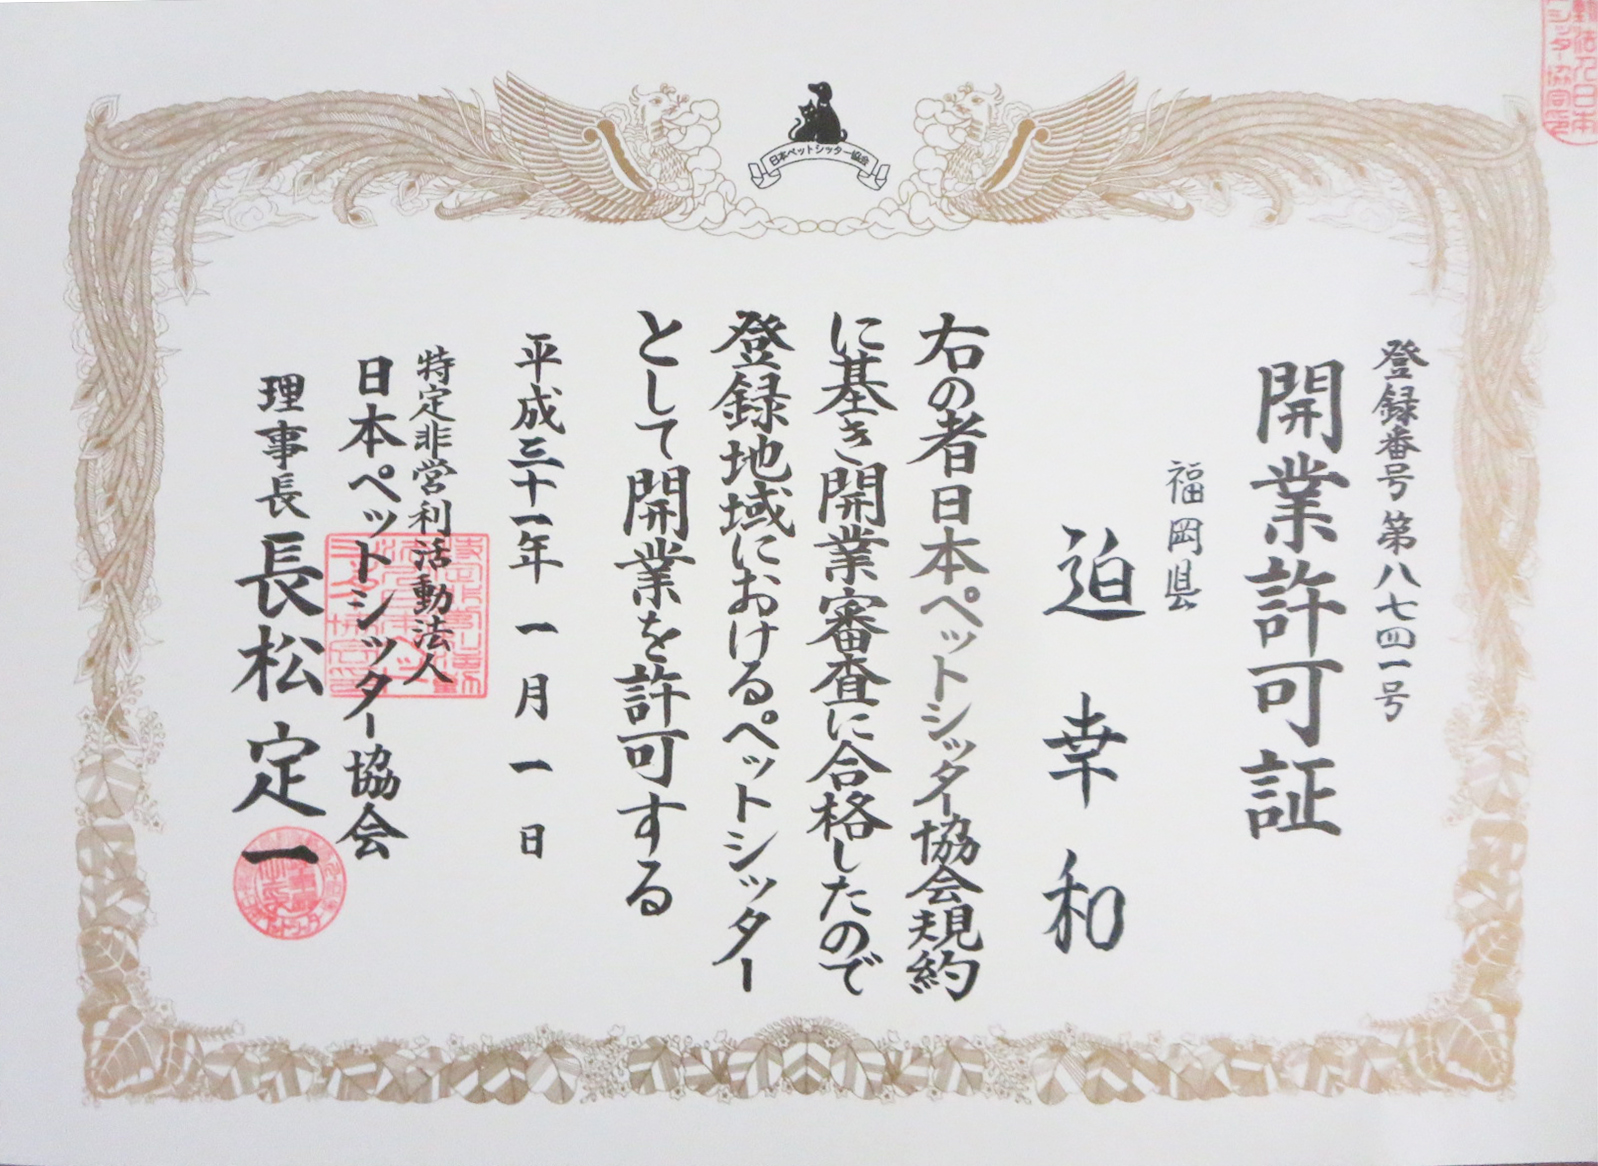 日本ペットシッター協会
登録番号 第八七四一号
開業許可証
福岡県
迫 幸和
右の者日本ペットシッター協会規約
に基き開業審査に合格したので
登録地域におけるペットシッター
として開業を許可する
平成三十一年 一月 一日
特定非営利活動法人
日本ペットシッター協会
理事長 長松定一